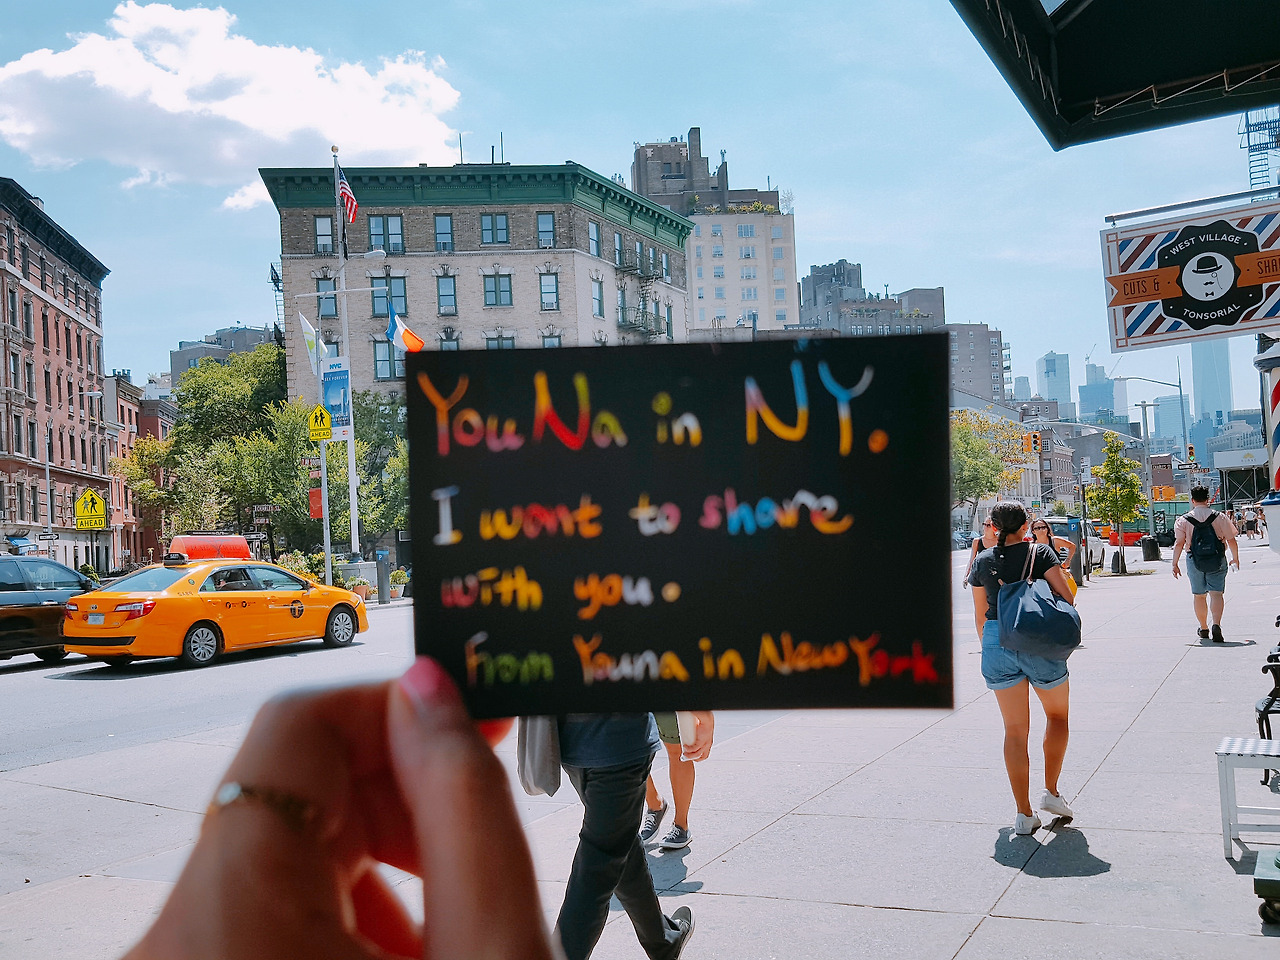 YouNa in NY.
I want to share
with you.
From Youna in New York
WEST VILLAGE
CUTS &
TONSORIAL
NYC
AHEAD
AHEAD